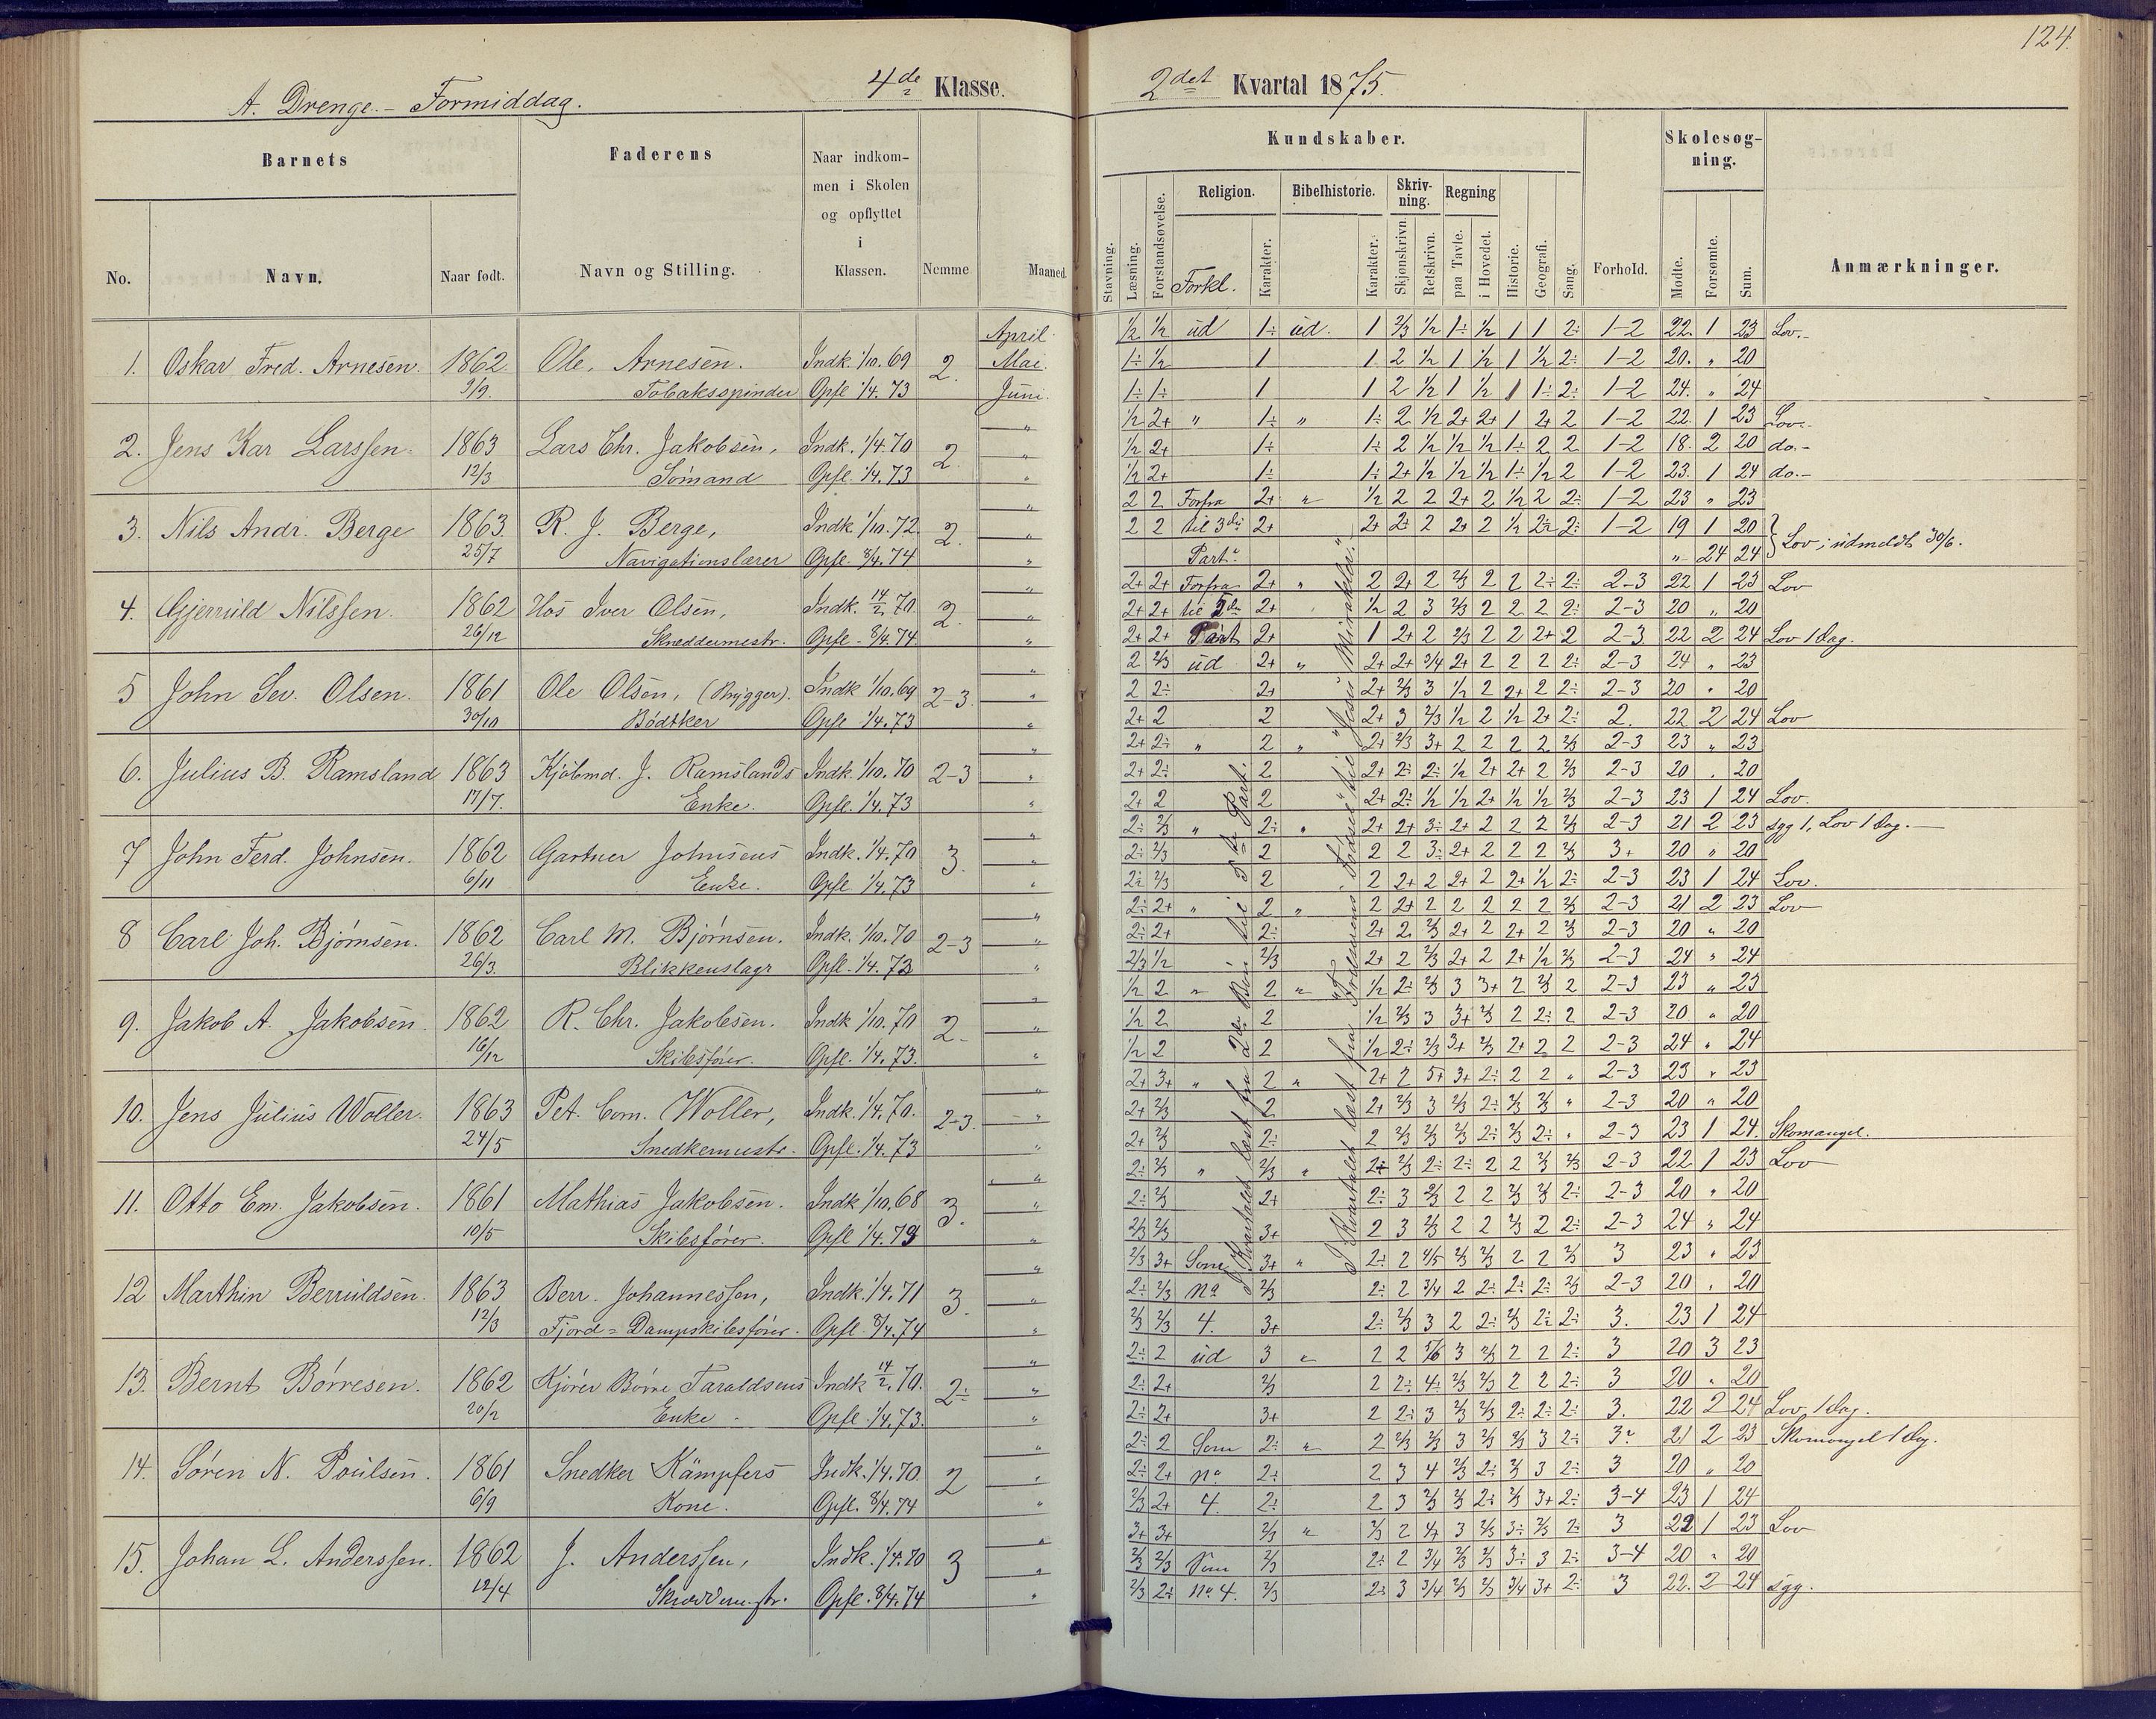 124.
A. Drenge. - Formiddag. 4de Klasse.
2det Kvartal 1875.
Barnets
Faderens
Naar indkommen i Skolen og opflyttet i Klassen.
Nemme
Maaned.
No. Navn. Naar født. Navn og Stilling.
Kundskaber.
Skolesøgning.
Stavning. Læsning. Forstandsøvelse. Religion. Forkl. Karakter. Bibelhistorie. Karakter. Skrivning. Skjønskrivn. Retskrivn. Regning paa Tavle. i Hovedet. Historie. Geografi. Sang. Forhold. Mødte. Forsømte. Sum. Anmærkninger.
April ½ ½ ud 1÷ ud. 1 ⅔ ½ 1÷ ½ 1 1 2÷ 1-2 22. 1 23 Lov.-
1. Oskar Fred. Arnesen. 1862 Ole Arnesen. Indk. 1/10. 69 2. Mai. 1÷ ½ 1 1 2 ½ 1 ½ 1 ½ 2÷ 1-2 20. " 20
9/9. Tobaksspinder Opfl 1/4. 73 Juni. 1÷ 1÷ 1 1 2 ½ 1 ½ 1 1÷ 2÷ 1-2 24. " 24
" ½ 2+ " 1÷ " 1÷ 2 ½ 2+ 2+ 1 2+ 2 1-2 22. 1 23 Lov.-
2. Jens Kar Larssen. 1863 Lars Chr. Jakobsen, Indk. 1/4. 70 2. " ½ 2+ 1÷ 1÷ 2 ½ ½ ½ 1÷ 2 2 1-2 18. 2 20 do.-
12/3 Sømand Opfl. 1/4. 73 " ½ 2+ 1÷ 1÷ 2+ ½ ½ ½ 1÷ ½ 2 1-2 23. 1 24 do.-
" 2 2 Forfra 2+ " ½ 2 2 2+ 2 ½ 2 2÷ 1-2 23 " 23
3. Nils Andr. Berge 1863. R. J. Berge, Indk 1/10. 72. 2. " 2 2 til 3die 2+ 2+ 2÷ 2 2+ 2 ½ 2÷ 2÷ 1-2 19 1 20
25/7 Navigationslærer Opfl. 8/4. 74 " Part. " 24 24 Lov; udmeldt 30/6.
" 2+ 2+ Forfra 2+ " 2 2+ 2 ⅔ 2 2 2÷ 2÷ 2-3 22 1 23 Lov
4. Gjerruld Nilssen. 1862 Hos Iver Olsen, Indk. 14/2. 70. 2. " 2+ 2+ til 5te 2+ ½ 2 3 ⅔ 2 2 2 2÷ 2-3 20 " 20
26/12 Skreddermestr. Opfl. 8/4. 74. " 2+ 2+ Part 2+ 1 2+ 2 ⅔ 2 2 2+ 2 2-3 22 2 24 Lov 1 dag.
" 2 ⅔ ud 2+ " 2+ 2+ ¾ 2+ 2 2 2 2÷ 2-3 24 " 23
5 John Sev. Olsen. 1861 Ole Olsen, (Brygger). Indk 1/10. 69 2-3. " 2 2÷ 2+ 2+ ⅔ 3 ½ 2 2+ 2 2÷ 2-3 20 " 20
30/10 Bødtker Opfl 1/4. 73 " 2+ 2 2 2+ 3 ⅔ ½ 2 ½ 2+ 2÷ 2. 22 2 24 Lov
" 2+ 2÷ " 2 " 2+ ⅔ 3+ 2 2 2 2 ⅔ 2-3 23 " 23
6. Julius B. Ramsland 1863 Kjøbmd. J. Ramslands Indk. 1/10. 70 2-3 " 2+ 2÷ 2 2+ 2÷ 2÷ ½ 2+ 2+ 2 ⅔ 2-3 20 " 20
17/7. Enke. Opfl. 1/4. 73 " 2+ 2 2 2+ 2÷ ½ ½ 2+ ½ ½ ⅔ 2-3 23 1 24 Lov.
" 2÷ ⅔ " 2÷ " 2+ 2+ 3÷ 2+ 2 2 2 ⅔ 2-3 21 2 23 syg 1, Lov 1 dag.
7 John Ferd. Johnsen. 1862 Gartner Johnsens Indk. 1/4. 70 3. " 2÷ ⅔ 2 2 2 3÷ 2+ 2 2 2 ⅔ 3+ 20 " 20
6/11 Enke. Opfl 1/4. 73 " 2÷ ⅔ 2 2 2+ 2 2+ 2 2+ ½ 2÷ 2-3 23 1 24 Lov.
" 2÷ 2+ " 2 " 2 2+ 2 2 2 2 2 ⅔ 2-3 21 2 23 Lov
8 Carl Joh. Bjørnsen. 1862 Carl M. Bjørnsen. Indk. 1/10. 70 2-3 " 2÷ 2+ 2÷ 2+ 2 ⅔ 2+ 2 2+ 2 ⅔ 2-3 20 " 20
26/3. Blikkenslagr Opfl. 1/4. 73 " ⅔ ½ ⅔ 2+ 2 ⅔ 2+ 2 2+ ½ ⅔ 2-3 24 " 24
" ½ 2 " 2 " ½ 2÷ ⅔ 3 3+ 2 ⅔ 2 2-3 23 " 23
9. Jakob A. Jakobsen. 1862 R. Chr. Jakobsen. Indk 1/10. 70 2. " ½ 2 2 ½ ⅔ 3 3+ ⅔ 2 2÷ 2 2-3 20 " 20
16/12 Skibsfører. Opfl. 1/4. 73. " ½ 2 2 ½ 2÷ ⅔ 3+ ⅔ 2+ 2 2 2-3 24 " 24
" 2+ 3+ " 2 " 2+ 2 5+ 3+ 2÷ 2 2 " 2-3 23 " 23
10. Jens Julius Woller. 1863 Pet. Corn. Woller, Indk. 1/4. 70. 2-3. " 2+ ⅔ 2 2+ ⅔ 3 ⅔ 2÷ ⅔ ⅔ " 2-3 20 " 20
24/5 Snedkermestr. Opfl. 1/4. 73 " 2+ ⅔ 2÷ 2 ⅔ ⅔ ⅔ 2÷ ⅔ 2÷ " 2-3 23 1 24. Skomangel.
" 2÷ ⅔ " ⅔ " 2+ ⅔ 2÷ 2÷ 2 2 ⅔ ⅔ 2-3 22 1 23 Lov
11. Otto Em. Jakobsen. 1861 Mathias Jakobsen. Indk 1/10. 68 3. " 2÷ ⅔ 2+ 2÷ 3 ⅔ 2 2 ⅔ ⅔ 2÷ 2-3 20 " 20
10/5 Skibsfører. Opfl 1/4. 73 " ⅔ ⅔ 3+ 2 3 ⅔ 2 2 ⅔ 2 2÷ 2-3 24 " 24
" ⅔ 3+ Som 3+ " 2÷ 2 4/5 ⅔ ⅔ 2 2 ⅔ 3 23 " 23
12 Marthin Berruldsen. 1863 Berr. Johannessen, Indk. 1/4. 71 3. " 2÷ ⅔ No ⅔ 2÷ 2 ¾ 2 2÷ 2÷ 2÷ ⅔ 2-3 20 " 20
12/3 Fjord= Dampskibsfører. Opfl. 8/4. 74 " ⅔ ⅔ 4. 3+ 2÷ ⅔ 3 2 2÷ ⅔ 2÷ 2÷ 3. 23 1 24
" 2÷ 2 ud 3 " 2 2 5/6 3 ⅔ 2 2 2÷ 3 20 3 23
13. Bernt Børresen. 1862 Kjører Børre Taraldsens Indk 14/2. 70. 2÷ " 2÷ 2+ ⅔ 2 2÷ 4÷ ⅔ ⅔ 2 2 2÷ 3 20 " 20
20/2 Enke. Opfl. 1/4. 73. " 2÷ 2+ 3+ 2 2÷ 3 ⅔ ⅔ 2÷ 2÷ 2÷ 3. 22 2 24 Lov, 1 dag.
" 2÷ 2 Som 2÷ " 2 ⅔ ⅔ 3 ⅔ ⅔ 3 2÷ 3÷ 21 2 23 Skomangel 1 dg.
14. Søren N. Poulsen. 1861 Snedker Kämpfers Indk. 1/4. 70. 2 " 2÷ 2+ No 2÷ 2 3 4 ⅔ 2÷ ⅔ 3 2÷ 3 20 " 20
6/9 Kone. Opfl. 8/4. 74 " ⅔ 2+ 4. 2÷ 2 3 ⅔ ⅔ 2÷ ⅔ 3+ 2÷ 3-4 23 1 24
" 3+ 3+ ⅔ " ⅔ 2 4+ 3 ⅔ 3÷ ⅔ 2÷ 3 22 1 23 Lov
15. Johan L. Anderssen. 1862 J. Anderssen, Indk. 1/4. 70 3 " ⅔ ⅔ Som ⅔ 2÷ 2 ¾ ⅔ ⅔ 3÷ 3 2÷ 3-4 20 " 20
12/4 Skræddermstr. Opfl. 8/4. 74 " ⅔ 2÷ No 4. ⅔ 2÷ 3 ¾ ⅔ ⅔ ¾ 3+ 2÷ 3 22. 2 24 syg.
I Kvartalet læst fra 2den Bøn til 5te Part.
I Kvartalet læst fra "Frelserens Fødsel" til "Jesu Mirakler."